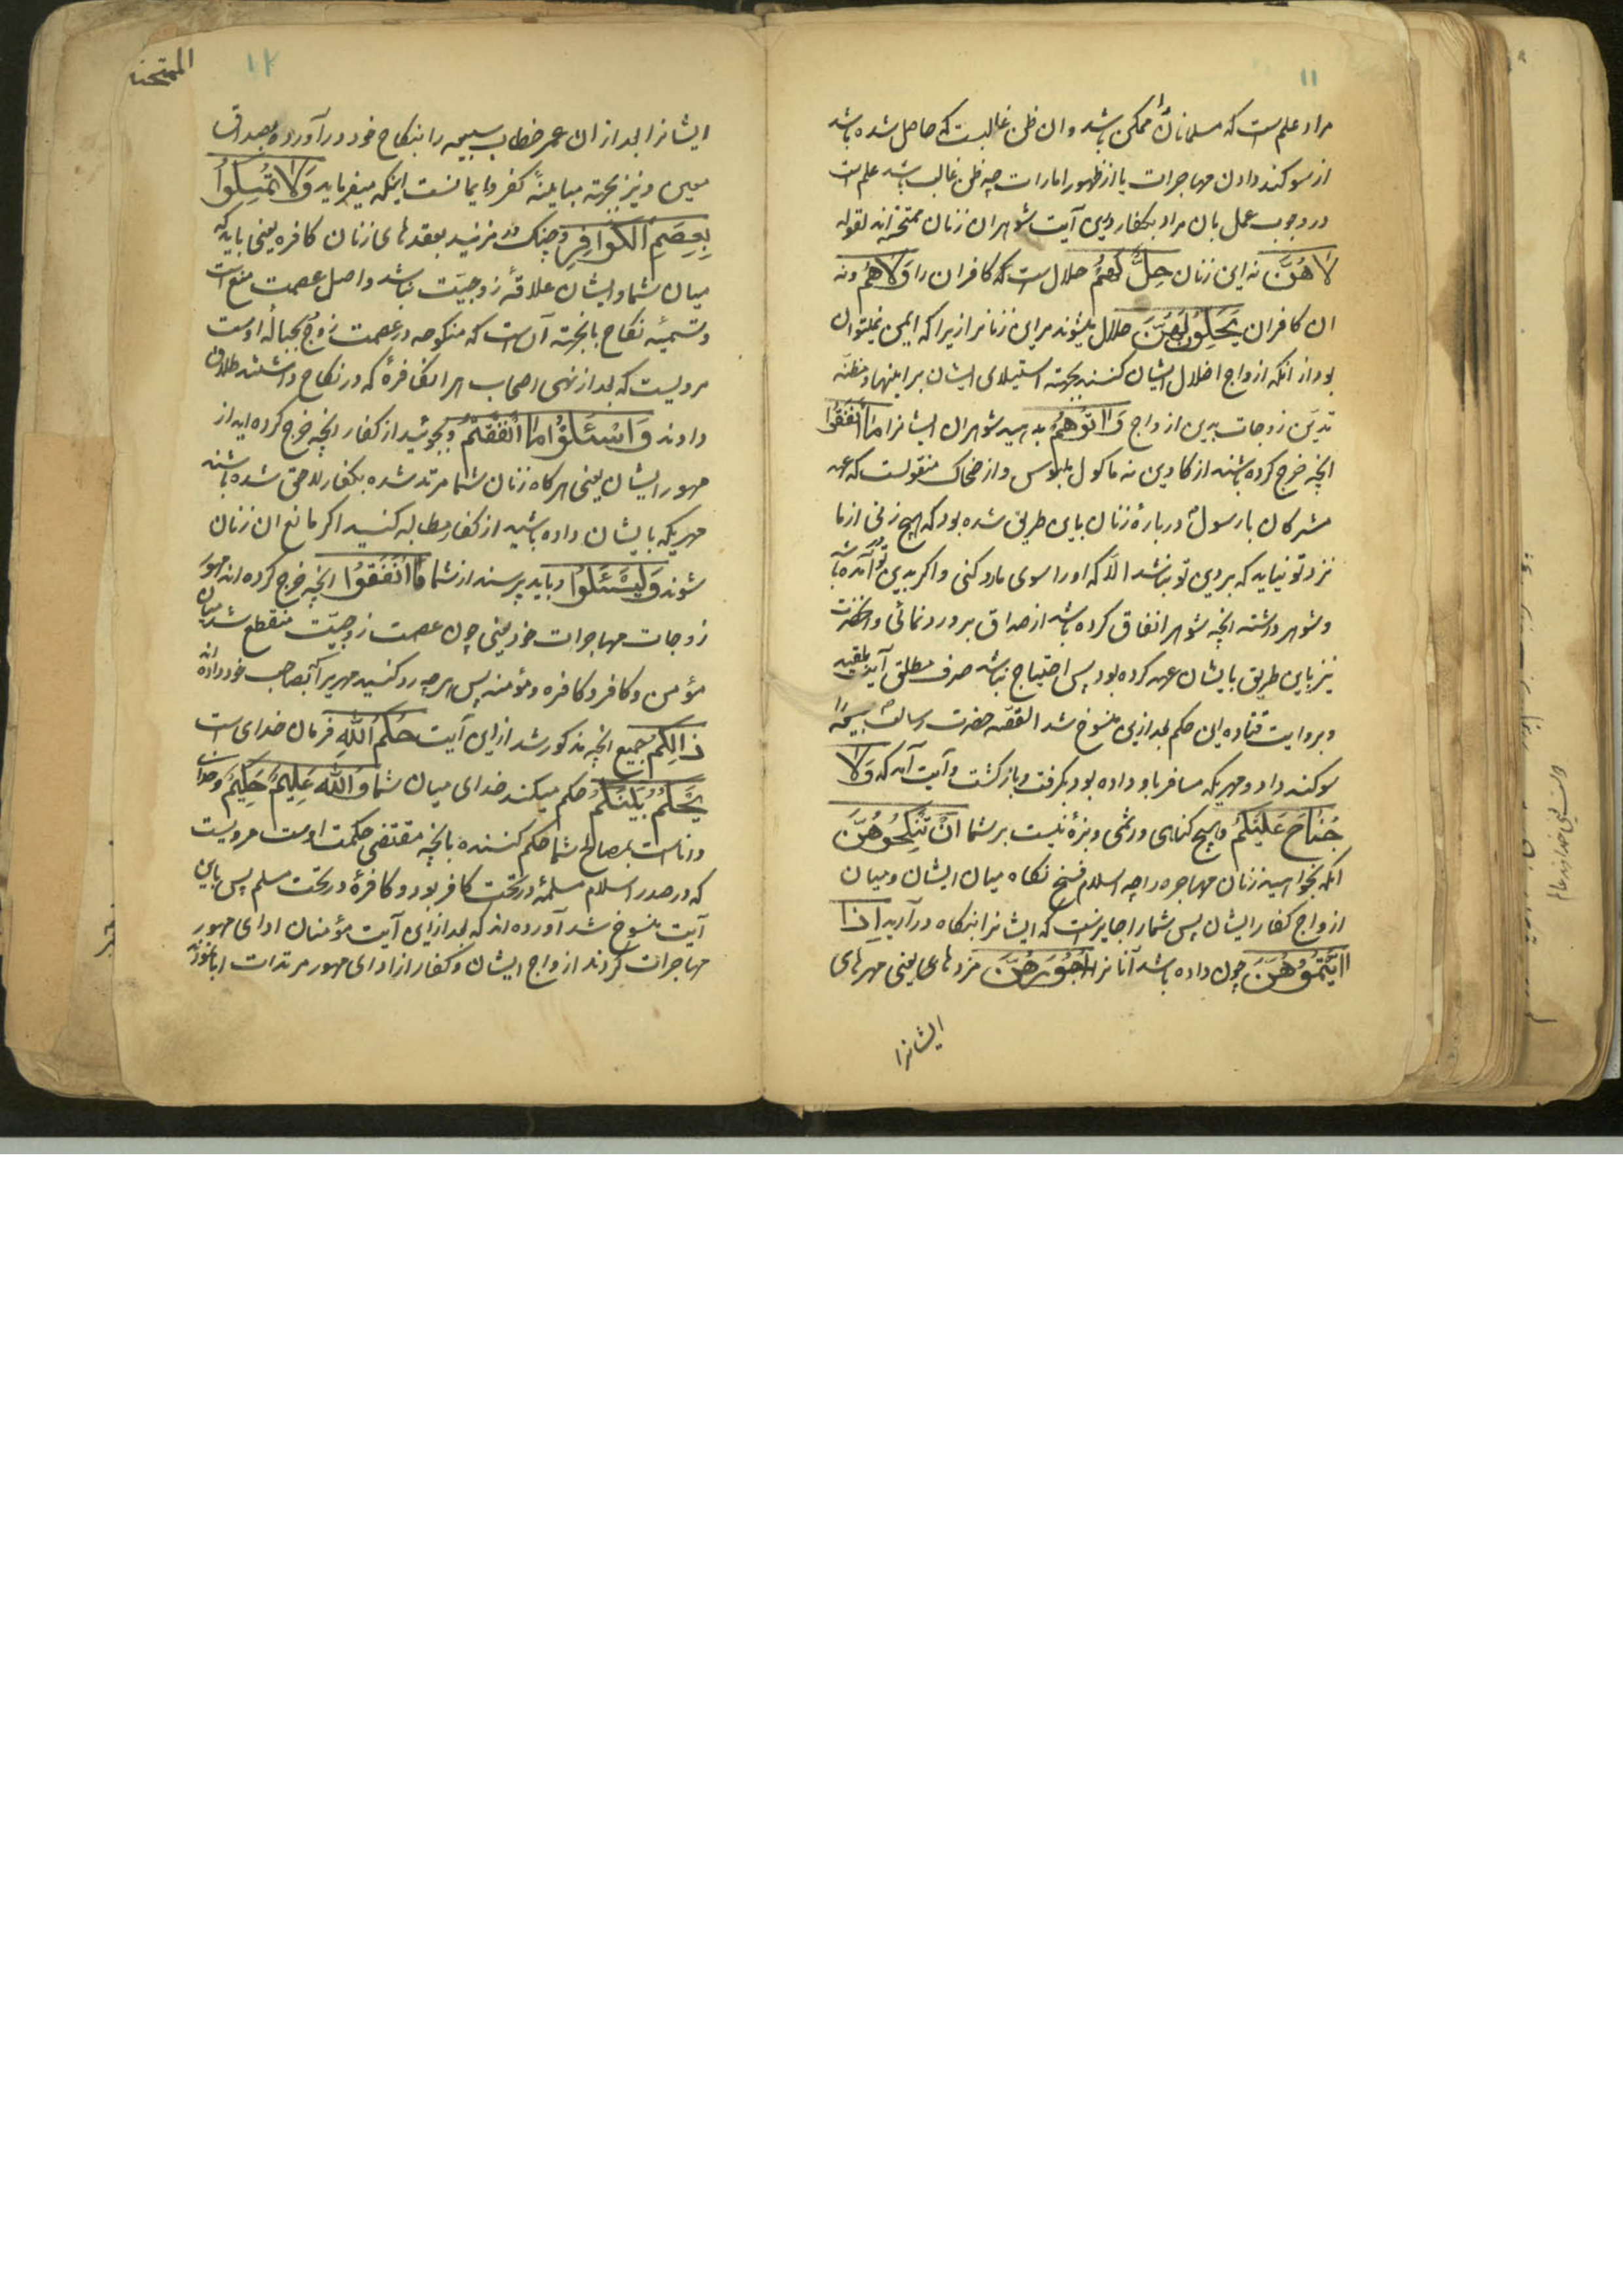 ١١
مراد علم است که مسلمانانرا ممکن باشد و ان ظن غالبست که حاصل شده باشد
از سوکند دادن مهاجرات یا از ظهور امارات چه ظن غالب باشد علم است
در وجوب عمل بان مراد بکفار درین آیت شوهران زنان ممتحنه اند لقوله
لَا هُنَّ نه این زنان حِلٌّ لَهُمْ حلال است که کافران را وَلَا هُمْ و نه
ان کافران يَحِلُّونَ لَهُنَّ حلال میشوند مر این زنانرا زیرا که ایمن نمیتوان
بود از انکه ازواج اضلال ایشان کنند بجهته استیلای ایشان بر اینها و مظنه
تدین زوجات بدین ازواج وَآتُوهُمْ بدهید شوهران ایشانرا مَا أَنْفَقُوا
انچه خرج کرده باشند از کابین نه ماکول و ملبوس و از ضحاک منقولست که عهد
مشرکان با رسول در بارهٔ زنان باین طریق شده بود که هیچ زنی از ما
نزد تو نیاید که بر دین تو نباشد الا که او را سوی ما رد کنی و اکر بدین تو درآمده باشد
و شوهر داشته انچه شوهر انفاق کرده باشد از صداق برو رد نمائی و انحضرت
نیز باین طریق با ایشان عهد کرده بود پس احتیاج نباشد صرف مطلق آیت بمقید
و بروایت قتاده این حکم بعد ازین منسوخ شد القصه حضرت رسالت سبیعه را
سوکند داد و مهریکه مسافر باو داده بود بکرفت و بازکشت و آیت آمد که وَلَا
جُنَاحَ عَلَيْكُمْ و هیچ کناهی و اثمی و بزهٔ نیست بر شما أَنْ تَنْكِحُوهُنَّ
انکه بخواهید زنان مهاجره را چه اسلام فسخ نکاه میان ایشان و میان
ازواج کفار ایشان پس شما را جایزست که ایشانرا بنکاه درآرید إِذَا
آتَيْتُمُوهُنَّ چون داده باشد آنانرا أُجُورَهُنَّ مزدهای یعنی مهرهای
ایشانرا
١٢
الممتحنه
ایشانرا بعد از ان عمر خطاب سبیعه را بنکاح خود درآورده بصداق
معین و نیز بجهته مباینهٔ کفر و ایمانست اینکه میفرماید وَلَا تُمْسِكُوا
بِعِصَمِ الْكَوَافِرِ و چنک در مزنید بعقدهای زنان کافره یعنی باید که
میان شما و ایشان علاقهٔ زوجیت نباشد و اصل عصمت منع است
و تسمیهٔ نکاح بانجهته آن است که منکوحه در عصمت زوج بحبالهٔ اوست
مرویست که بعد از نهی اصحاب هر انکافرهٔ که در نکاح داشتند طلاق
دادند وَاسْئَلُوا مَا أَنْفَقْتُمْ و بجوئید از کفار انچه خرج کرده اید از
مهور ایشان یعنی هرکاه زنان شما مرتد شده بکفار لاحق شده باشند
مهریکه بایشان داده باشید از کفار مطالبه کنید اکر مانع ان زنان
شوند وَلْيَسْئَلُوا و باید بپرسند از شما مَا أَنْفَقُوا انچه خرج کرده اند مهور
زوجات مهاجرات خود یعنی چون عصمت زوجیت منقطع شد میان
مؤمن و کافر و کافره و مؤمنه پس هر چه رد کنید مهریرا که بصاحب خود داده اند
ذَالِكُمْ جمیع انچه مذکور شد ازین آیت حُكْمُ اللَّهِ فرمان خدای است
يَحْكُمُ بَيْنَكُمْ حکم میکند خدای میان شما وَاللَّهُ عَلِيمٌ حَكِيمٌ و خدای
داناست بمصالح شما حکم کننده بانچه مقتضی حکمت اوست مرویست
که در صدر اسلام مسلمهٔ در تحت کافر بود و کافرهٔ در تحت مسلم پس باین
آیت منسوخ شد آورده اند که بعد ازین آیت مؤمنان ادای مهور
مهاجرات کردند ازواج ایشان و کفار از ادای مهور مرتدات ابا نمودند